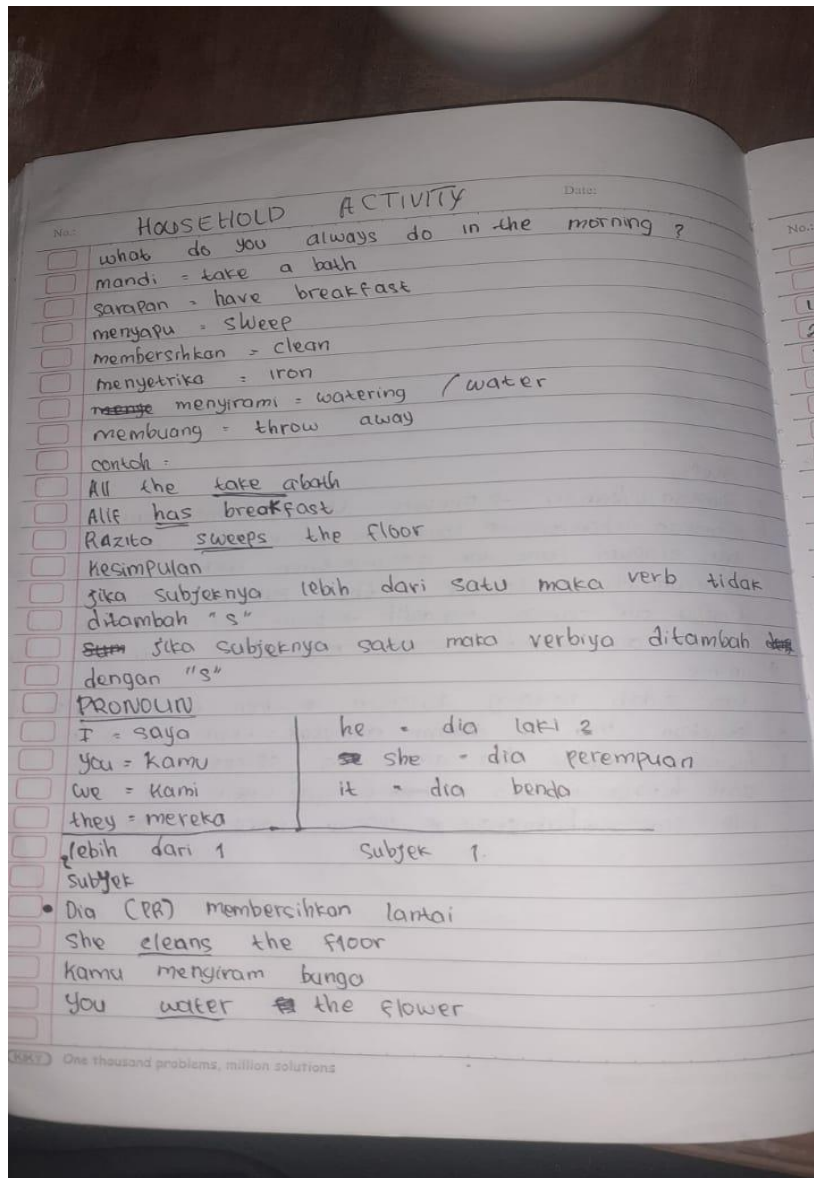 HOUSEHOLD ACTIVITY
Date:
No.:
what do you always do in the morning ?
mandi = take a bath
sarapan = have breakfast
menyapu = sweep
membersihkan = clean
menyetrika = iron
menyirami = watering / water
membuang = throw away
contoh =
All the take a bath
Alif has breakfast
Razito sweeps the floor
Kesimpulan
jika subjeknya lebih dari satu maka verb tidak
ditambah "s"
jika subjeknya satu maka verbnya ditambah
dengan "s"
PRONOUN
I = saya he = dia laki 2
you = kamu she = dia perempuan
we = kami it = dia benda
they = mereka
lebih dari 1 subjek 1.
subyek
• Dia (PR) membersihkan lantai
she cleans the floor
kamu mengiram bunga
you water the flower
KKY One thousand problems, million solutions
No.:
1
2